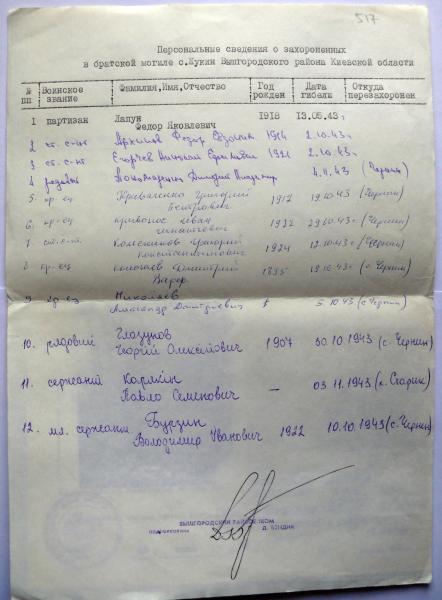 517
Персональные сведения о захороненных
в братской могиле с.Жукин Вышгородского района Киевской области
№ пп Воинское звание Фамилия,Имя,Отчество Год рожден Дата гибели Откуда перезахоронен
1 партизан Лапун 1918 13.05.43г
Федор Яковлевич
2 ст. с-нт Архипов Федор 1914 2.10.43г
3 ст. с-нт Егорчев Николай 1921 2.10.43г
4 рядовой Пономаренко 4.11.43 (Чернин)
5 кр-ец Кривошенко Григорий 1917 19.10.43 (Чернин)
Петрович
6 кр-ец Кривонос Иван 29.10.43г (Чернин)
Игнатович
7 ст. с-нт Колесников Григорий 1924 12.10.43г (Чернин)
Константинович
8 кр-ец Дмитрий 1895 19.10.43г (с Чернин)
9 кр-ец Николаев
Александр Дмитриевич 5.10.43 (с Чернин)
10. рядовий Глазунов 1907 30.10 1943 (с. Чернин)
Георгій Олексійович
11. сержант Карякін — 03.11.1943 (х. Старик)
Павло Семенович
12. мл. сержант Бурзин 1922 10.10.1943 (с. Чернин)
Володимир Іванович
ВЫШГОРОДСКИЙ РАЙВОЕНКОМ
ПОДПОЛКОВНИК Д. БЕНДИК